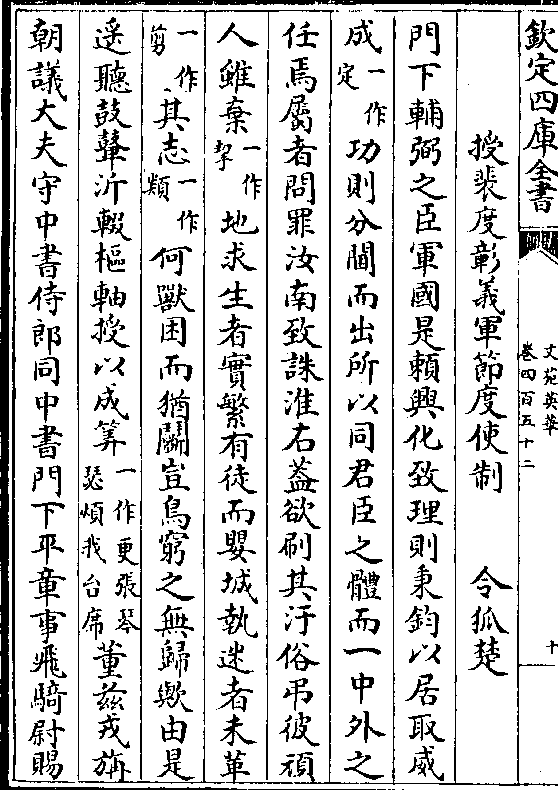 欽定四庫全書
文苑英華
卷四百五十二
十
授裴度彰義軍節度使制 令狐楚
門下輔弼之臣軍國是賴興化致理則秉鈞以居取威
成一作定功則分閫而出所以同君臣之體而一中外之
任焉屬者問罪汝南致誅淮右蓋欲刷其汙俗弔彼頑
人雖棄一作挈地求生者實繁有徒而嬰城執迷者未革
一作剪其志一作類何獸困而猶鬭豈鳥窮之無歸歟由是
遥聽鼓鼙沂輟樞軸授以成筭一作更張琴瑟煩我台席董兹戎旃
朝議大夫守中書侍郎同中書門下平章事飛騎尉賜